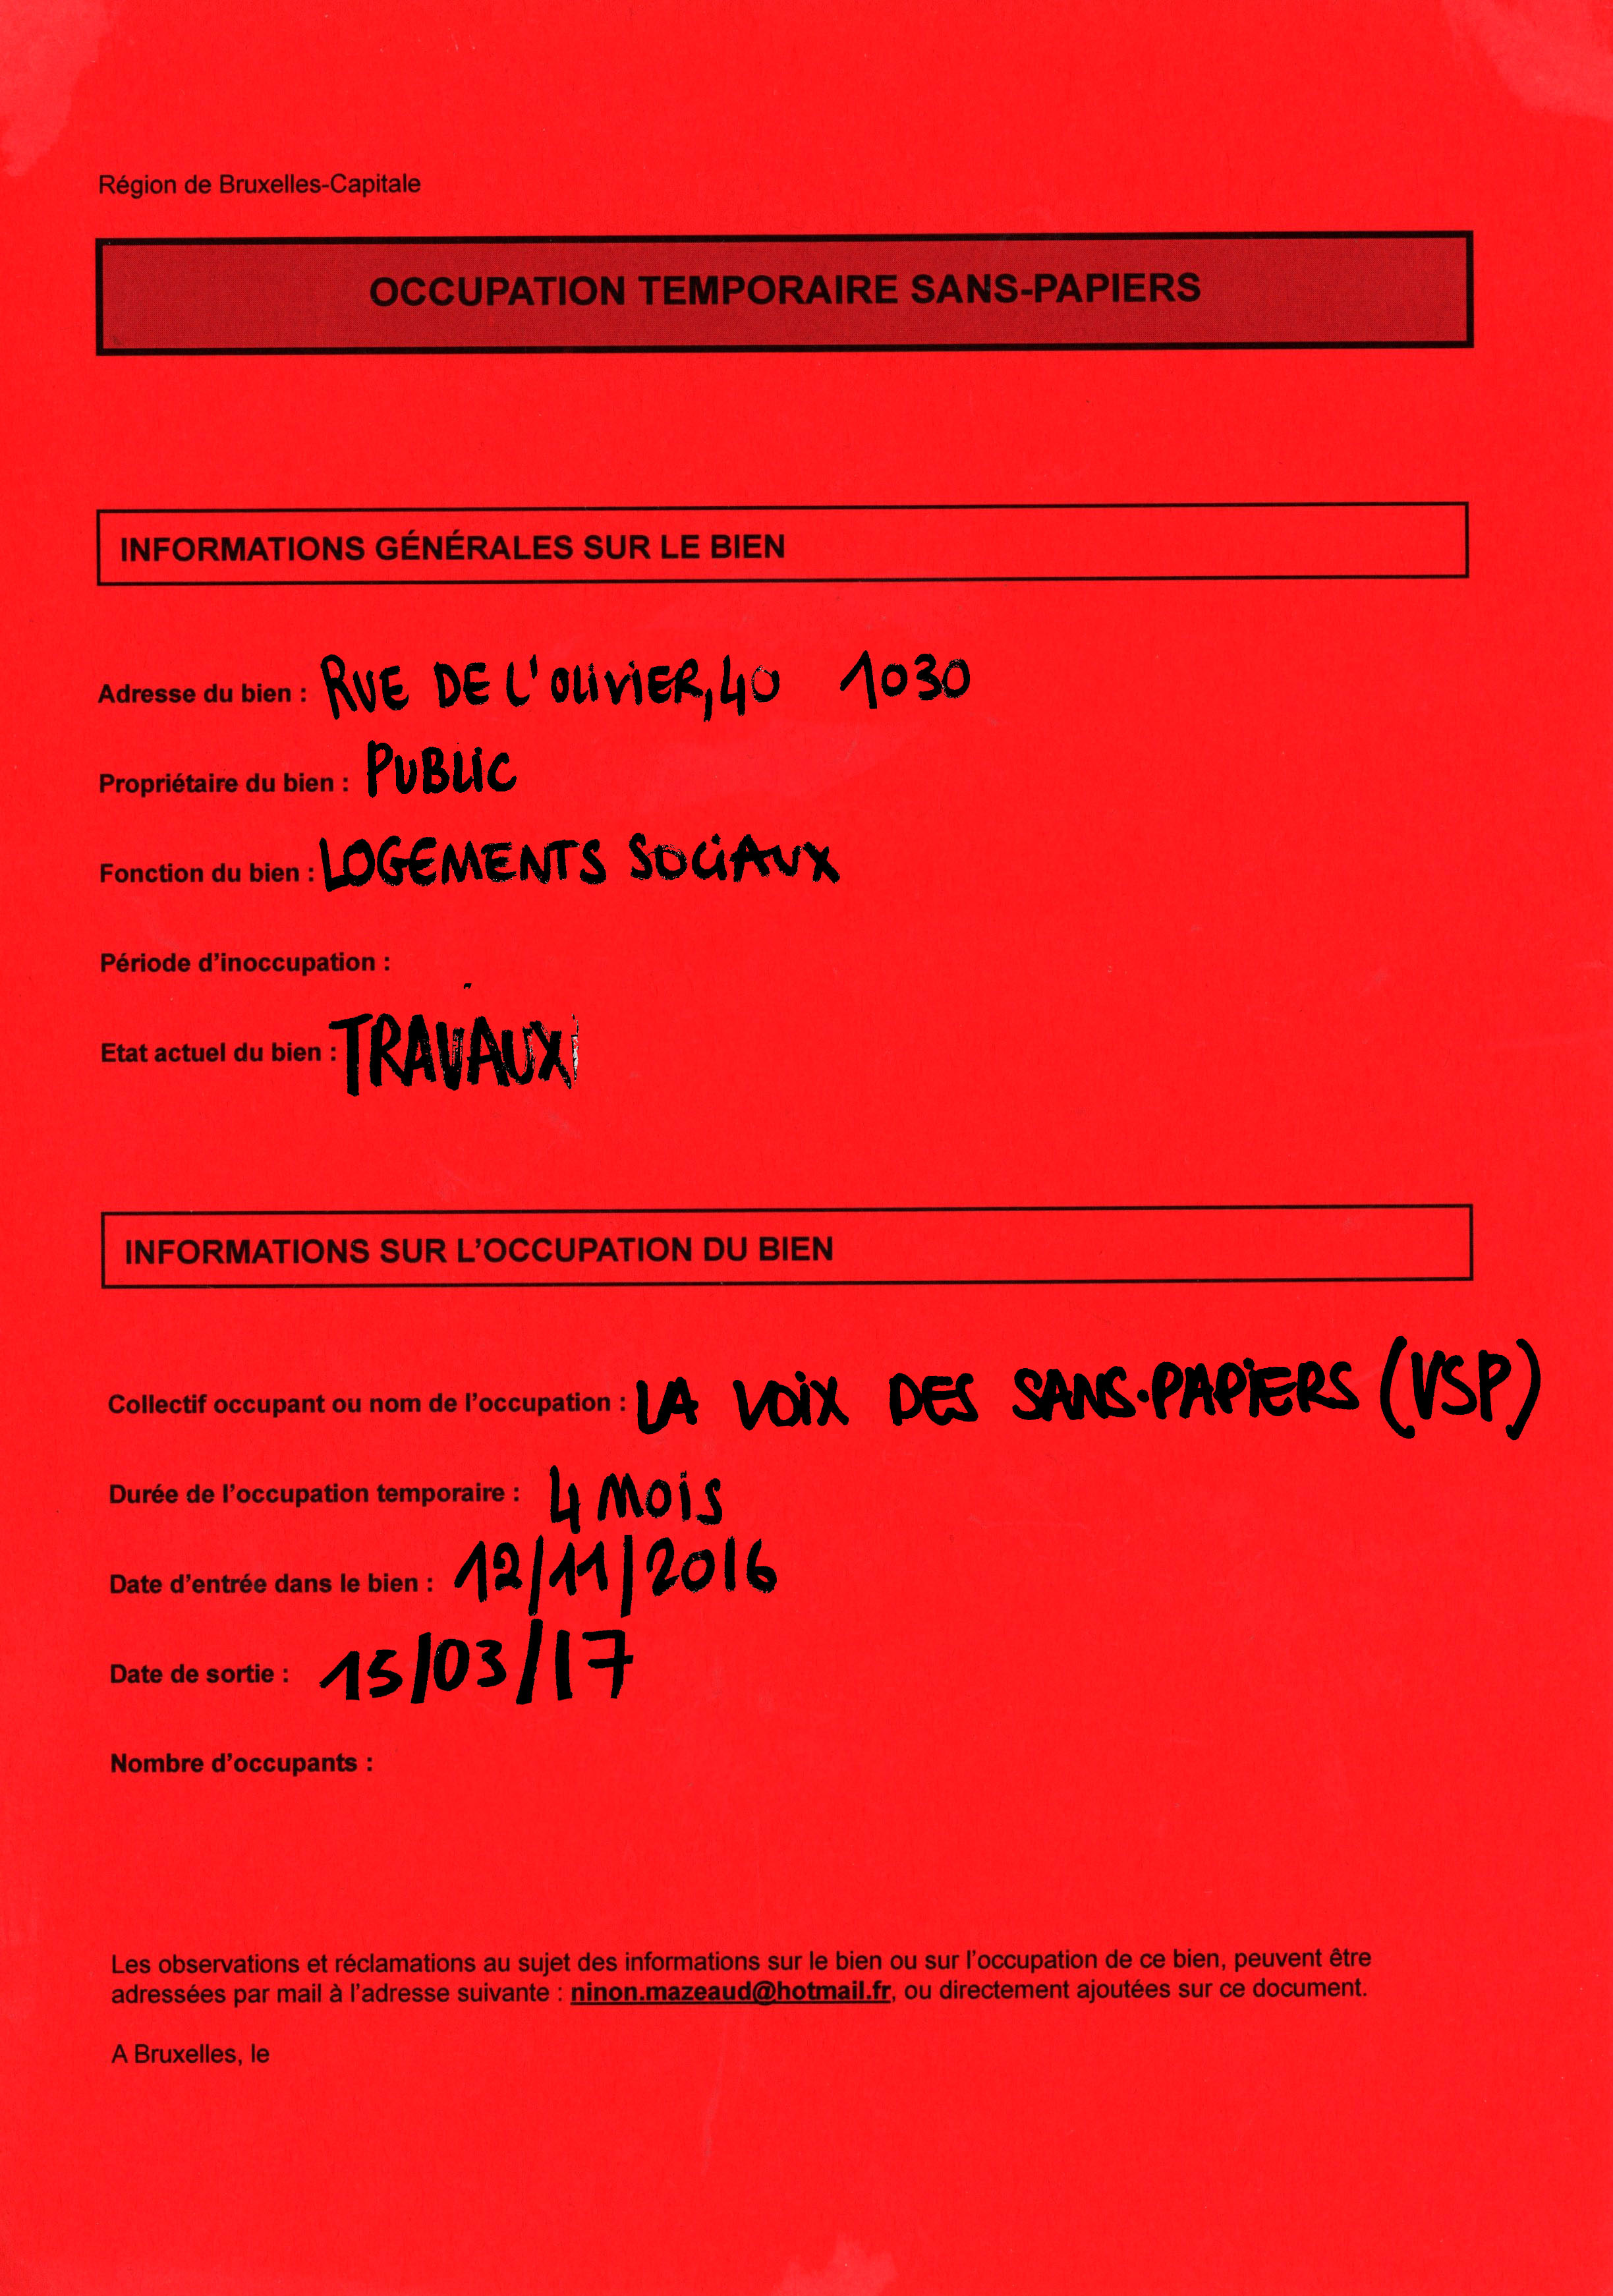 Région de Bruxelles-Capitale
OCCUPATION TEMPORAIRE SANS-PAPIERS
INFORMATIONS GÉNÉRALES SUR LE BIEN
Adresse du bien : RUE DE L'OLIVIER, 40 1030
Propriétaire du bien : PUBLIC
Fonction du bien : LOGEMENTS SOCIAUX
Période d'inoccupation :
Etat actuel du bien : TRAVAUX
INFORMATIONS SUR L'OCCUPATION DU BIEN
Collectif occupant ou nom de l'occupation : LA VOIX DES SANS-PAPIERS (VSP)
Durée de l'occupation temporaire : 4 MOIS
Date d'entrée dans le bien : 12/11/2016
Date de sortie : 15/03/17
Nombre d'occupants :
Les observations et réclamations au sujet des informations sur le bien ou sur l'occupation de ce bien, peuvent être
adressées par mail à l'adresse suivante : ninon.mazeaud@hotmail.fr, ou directement ajoutées sur ce document.
A Bruxelles, le